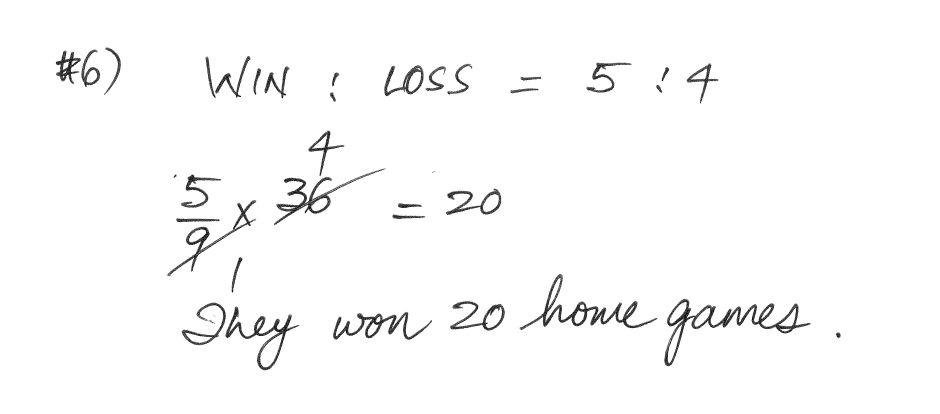 #6) WIN : LOSS = 5 : 4
4
5/9 x 36 = 20
1
They won 20 home games.